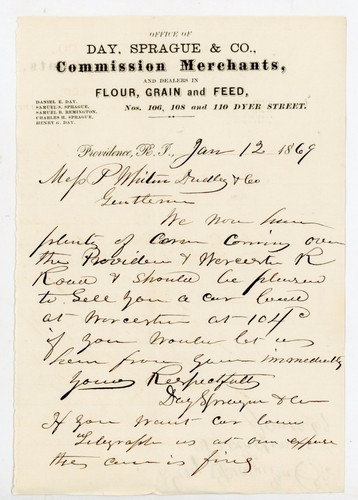 OFFICE OF
DAY, SPRAGUE & CO.,
Commission Merchants,
AND DEALERS IN
FLOUR, GRAIN and FEED,
Nos. 106, 108 and 110 DYER STREET.
DANIEL E. DAY,
SAMUEL S. SPRAGUE,
SAMUEL R. REMINGTON,
CHARLES H. SPRAGUE,
HENRY G. DAY.
Providence, R. I., Jan 12 1869
Mess P Whitin Dudley & Co
Gentlemen
We now have
plenty of Coran coming over
the Providence & Worcester R
Road & should be pleased
to Sell you a car load
at Worcester at 104c
if you would let us
hear from you immediately
Yours Respectfully
Day Sprague & Co
If you want car load
Telegraph us at our expense
the corn is fine